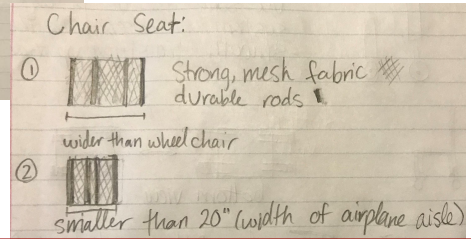 Chair Seat:
① Strong, mesh fabric
durable rods
wider than wheelchair
②
smaller than 20" (width of airplane aisle)